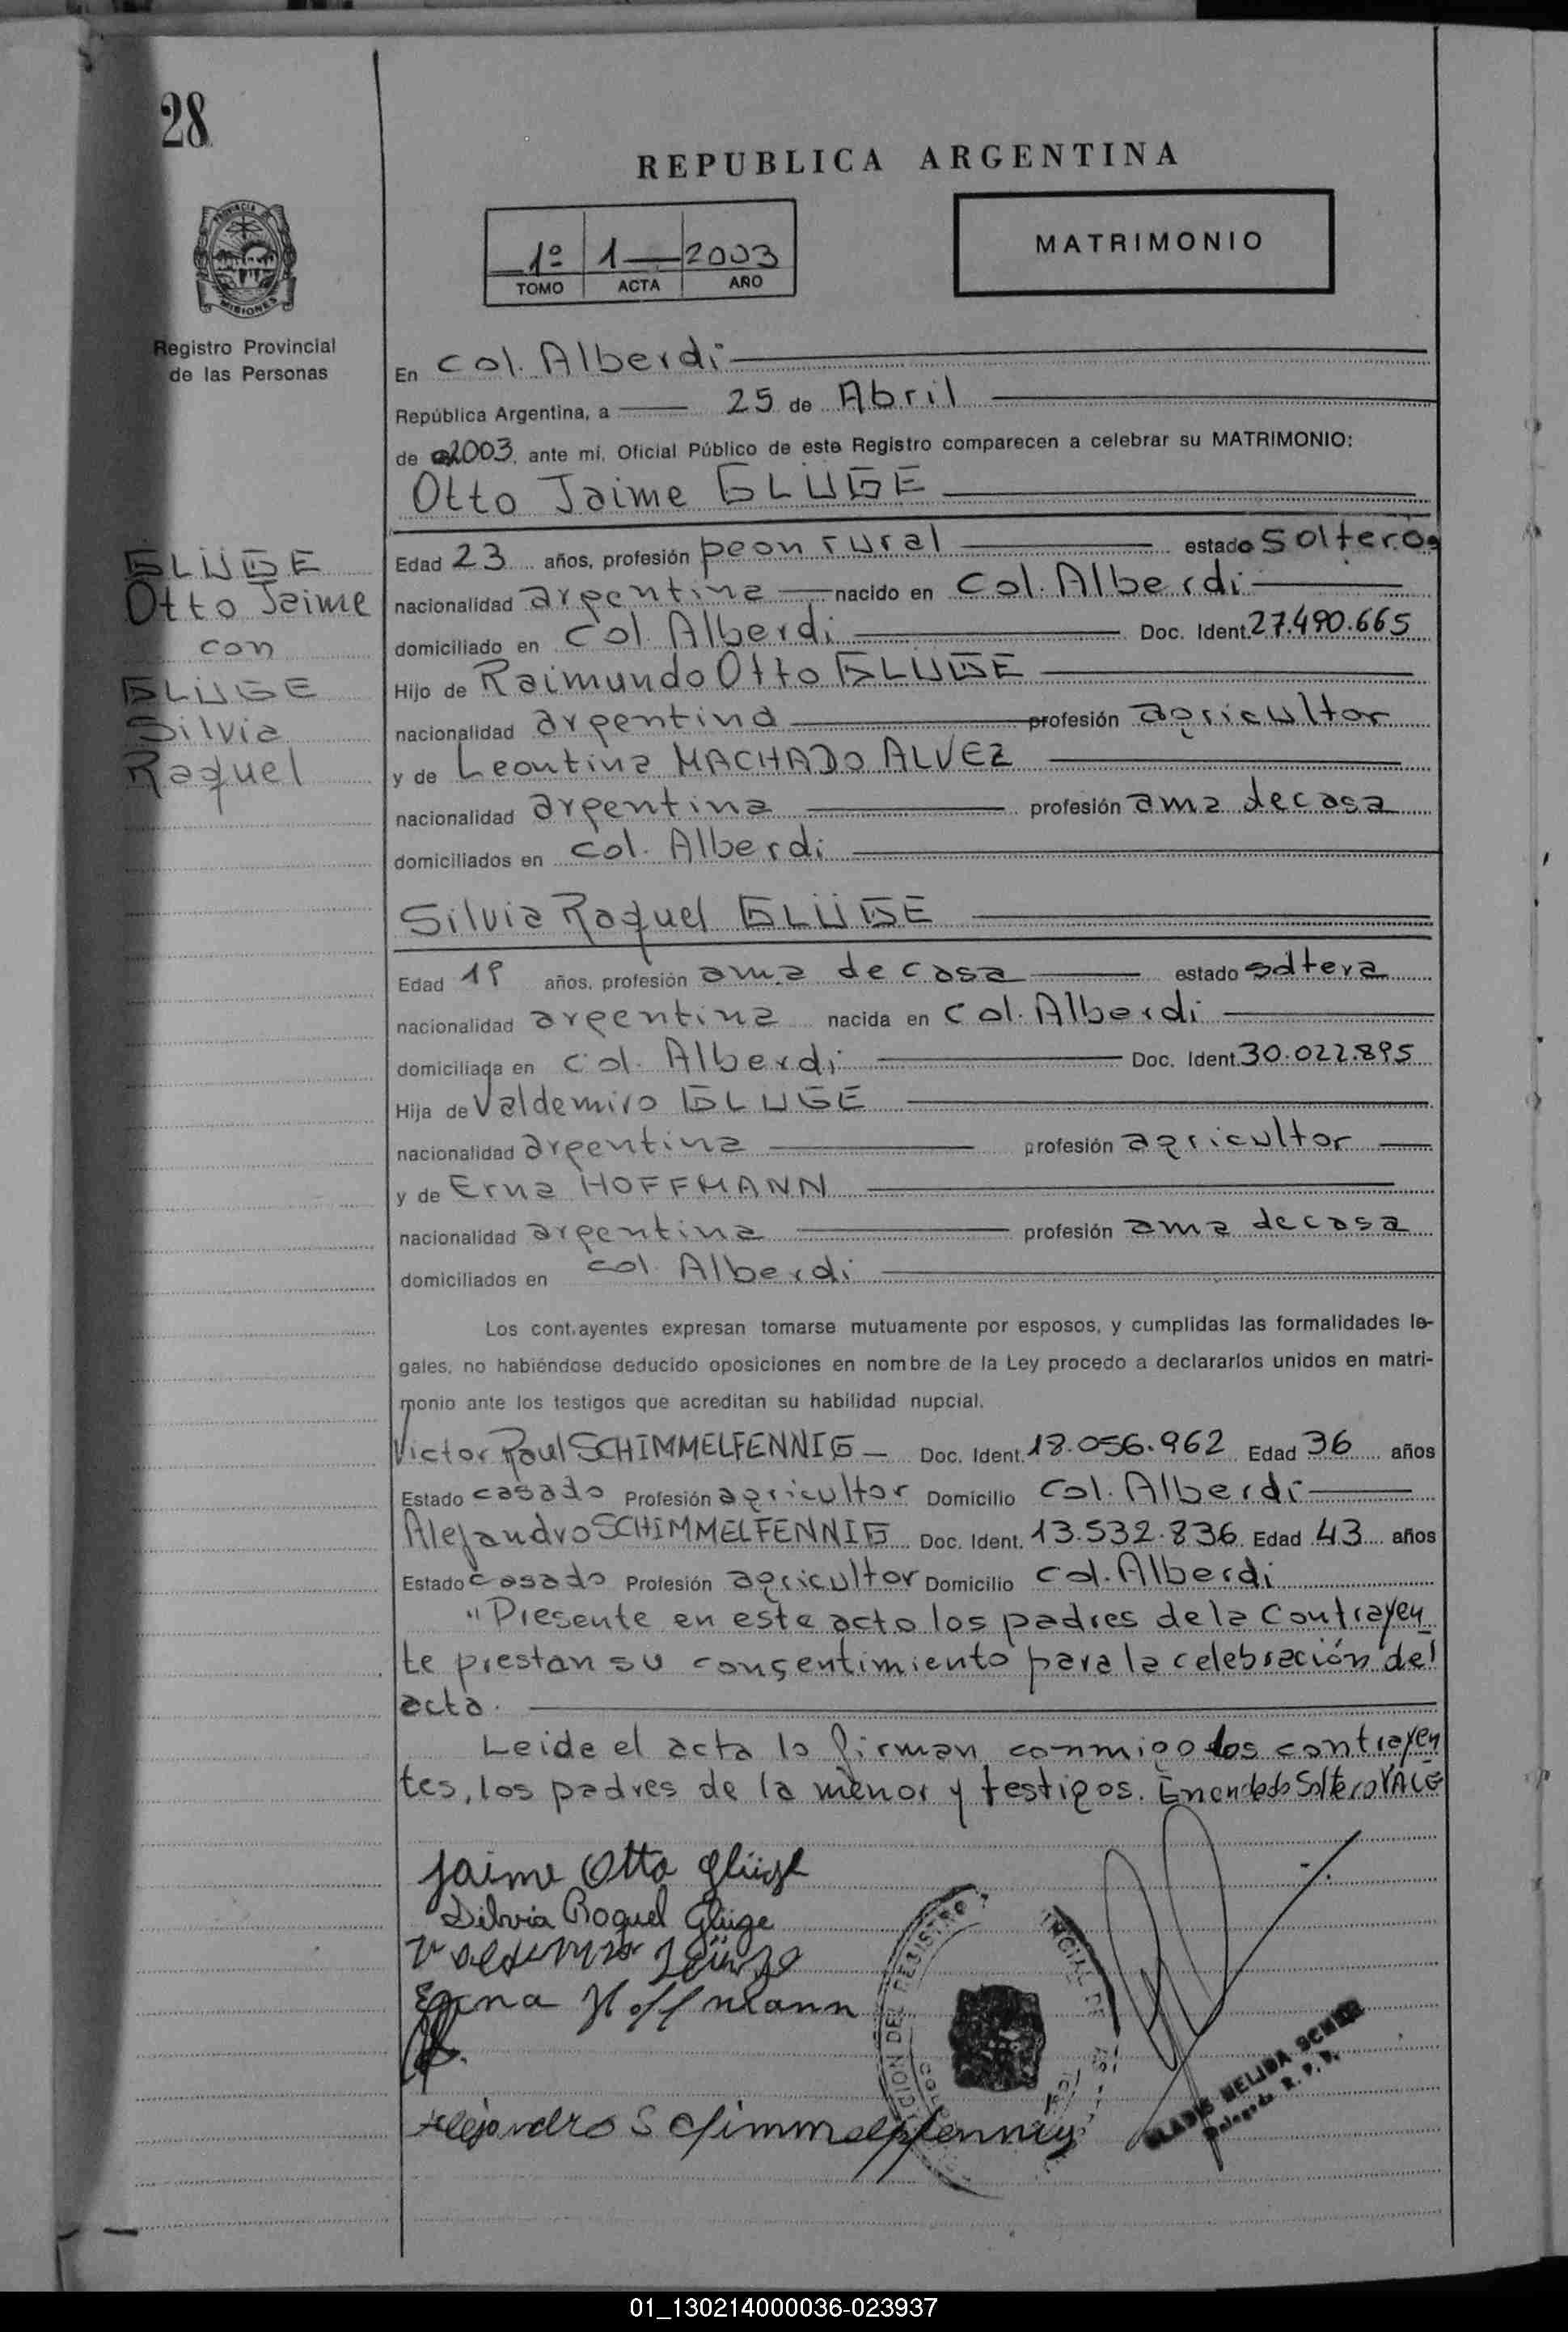 28
REPUBLICA ARGENTINA
1º 1 2003
TOMO ACTA AÑO
MATRIMONIO
PROVINCIA DE
MISIONES
Registro Provincial
de las Personas
En Col. Alberdi
República Argentina, a 25 de Abril
de 2003, ante mí, Oficial Público de este Registro comparecen a celebrar su MATRIMONIO:
Otto Jaime GLÜGE
GLÜGE
Otto Jaime
con
GLÜGE
Silvia
Raquel
Edad 23 años, profesión peon rural estado soltero
nacionalidad argentina nacido en Col. Alberdi
domiciliado en Col. Alberdi Doc. Ident. 27.490.665
Hijo de Raimundo Otto GLÜGE
nacionalidad argentina profesión agricultor
y de Leontina MACHADO ALVEZ
nacionalidad argentina profesión ama de casa
domiciliados en Col. Alberdi
Silvia Raquel GLÜGE
Edad 19 años, profesión ama de casa estado soltera
nacionalidad argentina nacida en Col. Alberdi
domiciliada en Col. Alberdi Doc. Ident. 30.022.895
Hija de Valdemiro GLUGE
nacionalidad argentina profesión agricultor
y de Erna HOFFMANN
nacionalidad argentina profesión ama de casa
domiciliados en Col. Alberdi
Los contrayentes expresan tomarse mutuamente por esposos, y cumplidas las formalidades le-
gales, no habiéndose deducido oposiciones en nombre de la Ley procedo a declararlos unidos en matri-
monio ante los testigos que acreditan su habilidad nupcial.
Victor Raul SCHIMMELFENNIG Doc. Ident. 18.056.962 Edad 36 años
Estado casado Profesión agricultor Domicilio Col. Alberdi
Alejandro SCHIMMELFENNIG Doc. Ident. 13.532.836 Edad 43 años
Estado casado Profesión agricultor Domicilio Col. Alberdi
"Presente en este acto los padres de la contrayen
te prestan su consentimiento para la celebración del
acto.
Leide el acta la firman conmigo los contrayen
tes, los padres de la menor y testigos. Enmendado Soltero VALE
Jaime Otto Glüge
Silvia Raquel Glüge
Valdemiro Glüge
Erna Hoffmann
Alejandro Schimmelpfennig
GLADIS NELIDA
Delegada R. P. P.
01_130214000036-023937